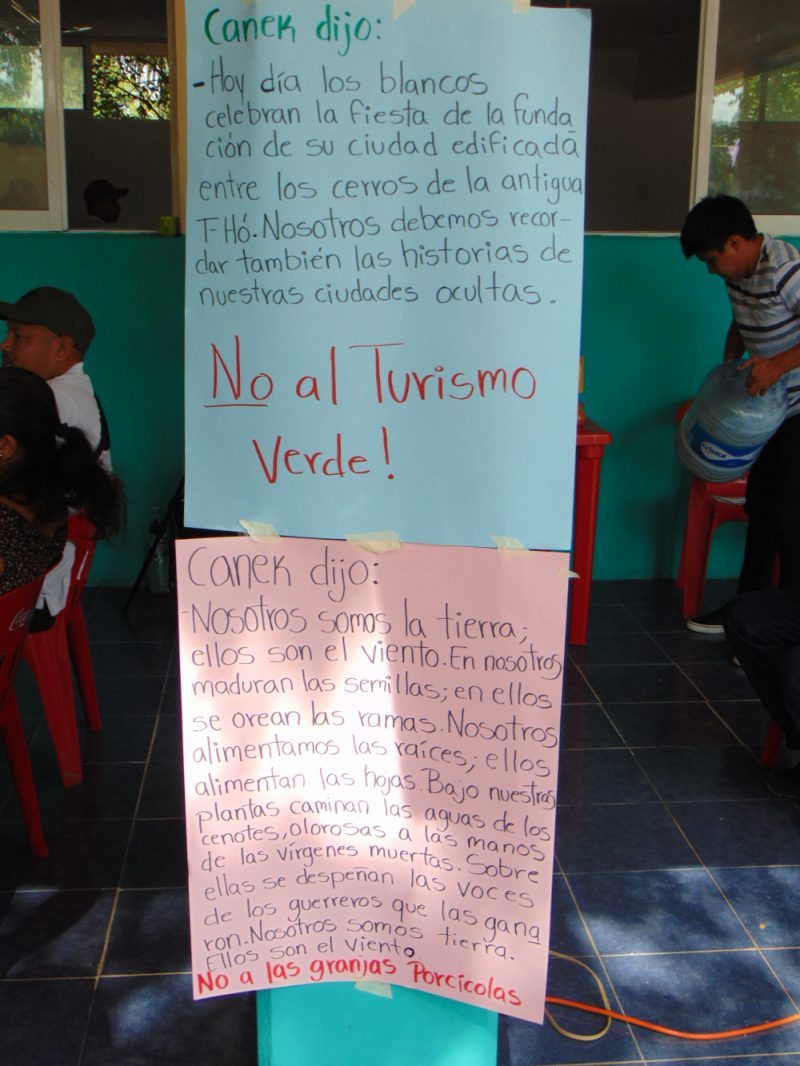 Canek dijo:
-Hoy día los blancos
celebran la fiesta de la funda
ción de su ciudad edificada
entre los cerros de la antigua
T-Hó. Nosotros debemos recor-
dar también las historias de
nuestras ciudades ocultas.
No al Turismo
Verde!
Canek dijo:
-Nosotros somos la tierra;
ellos son el viento. En nosotros
maduran las semillas; en ellos
se orean las ramas. Nosotros
alimentamos las raíces; ellos
alimentan las hojas. Bajo nuestras
plantas caminan las aguas de los
cenotes, olorosas a las manos
de las vírgenes muertas. Sobre
ellas se despeñan las voces
de los guerreros que las gana
ron. Nosotros somos tierra.
Ellos son el viento.
No a las granjas Porcícolas
Cristal